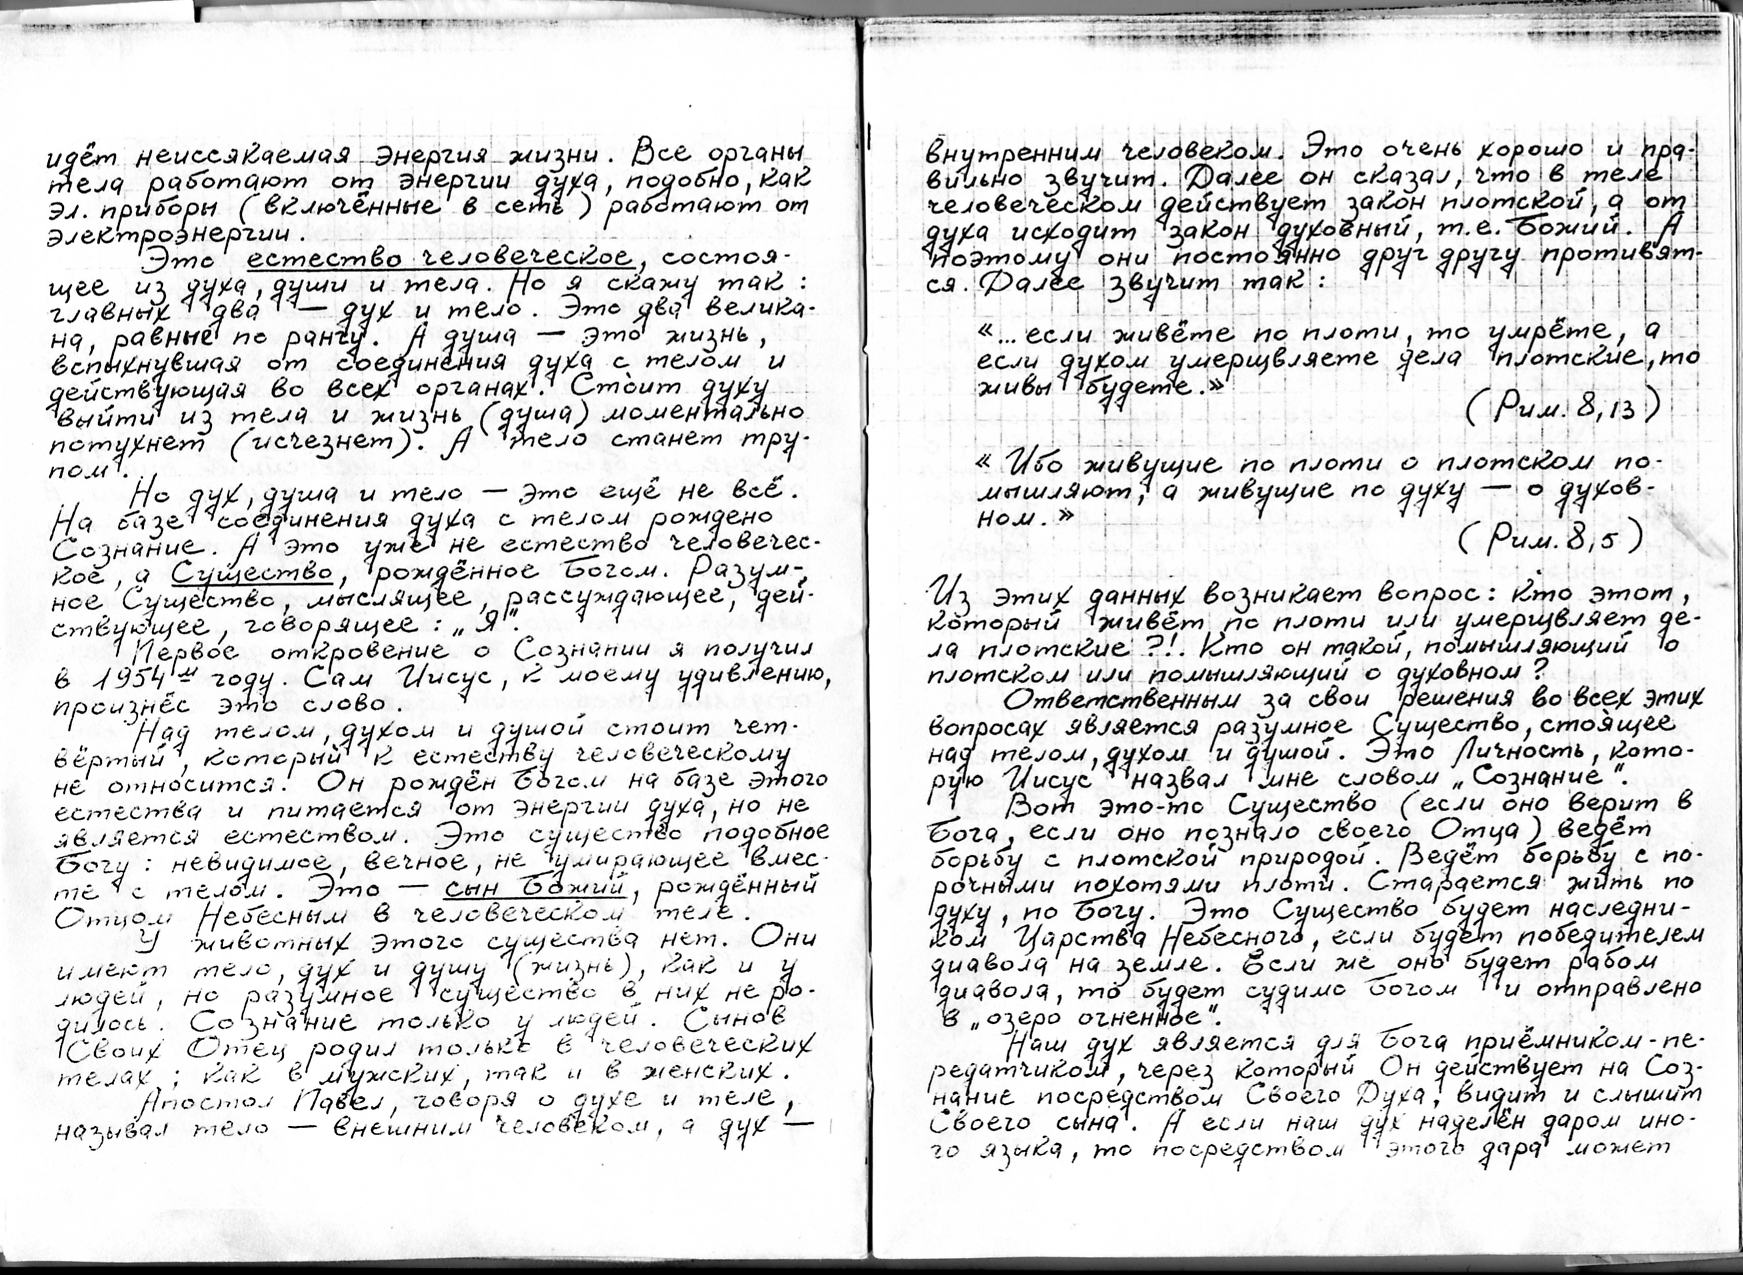 идёт неиссякаемая энергия жизни. Все органы
тела работают от энергии духа, подобно, как
эл. приборы (включённые в сеть) работают от
электроэнергии.
Это естество человеческое, состоя-
щее из духа, души и тела. Но я скажу так:
главных два — дух и тело. Это два велика-
на, равные по рангу. А душа — это жизнь,
вспыхнувшая от соединения духа с телом и
действующая во всех органах. Стоит духу
выйти из тела и жизнь (душа) моментально
потухнет (исчезнет). А тело станет тру-
пом.
Но дух, душа и тело — это ещё не всё.
На базе соединения духа с телом рождено
Сознание. А это уже не естество человечес-
кое, а Существо, рождённое Богом. Разум-
ное Существо, мыслящее, рассуждающее, дей-
ствующее, говорящее: „Я".
Первое откровение о Сознании я получил
в 1954-м году. Сам Иисус, к моему удивлению,
произнёс это слово.
Над телом, духом и душой стоит чет-
вёртый, который к естеству человеческому
не относится. Он рождён Богом на базе этого
естества и питается от энергии духа, но не
является естеством. Это существо подобное
Богу: невидимое, вечное, не умирающее вмес-
те с телом. Это — сын Божий, рождённый
Отцом Небесным в человеческом теле.
У животных этого существа нет. Они
имеют тело, дух и душу (жизнь), как и у
людей, но разумное существо в них не ро-
дилось. Сознание только у людей. Сынов
Своих Отец родил только в человеческих
телах; как в мужских, так и в женских.
Апостол Павел, говоря о духе и теле,
называл тело — внешним человеком, а дух —
внутренним человеком. Это очень хорошо и пра-
вильно звучит. Далее он сказал, что в теле
человеческом действует закон плотской, а от
духа исходит закон духовный, т.е. Божий. А
поэтому они постоянно друг другу противят-
ся. Далее звучит так:
«...если живёте по плоти, то умрёте, а
если духом умерщвляете дела плотские, то
живы будете.»
(Рим. 8,13)
«Ибо живущие по плоти о плотском по-
мышляют, а живущие по духу — о духов-
ном.»
(Рим. 8,5)
Из этих данных возникает вопрос: кто этот,
который живёт по плоти или умерщвляет де-
ла плотские?!. Кто он такой, помышляющий о
плотском или помышляющий о духовном?
Ответственным за свои решения во всех этих
вопросах является разумное Существо, стоящее
над телом, духом и душой. Это Личность, кото-
рую Иисус назвал мне словом „Сознание".
Вот это-то Существо (если оно верит в
Бога, если оно познало своего Отца) ведёт
борьбу с плотской природой. Ведёт борьбу с по-
рочными похотями плоти. Старается жить по
духу, по Богу. Это Существо будет наследни-
ком Царства Небесного, если будет победителем
диавола на земле. Если же оно будет рабом
диавола, то будет судимо Богом и отправлено
в „озеро огненное".
Наш дух является для Бога приёмником-пе-
редатчиком, через который Он действует на Соз-
нание посредством Своего Духа, видит и слышит
Своего сына. А если наш дух наделён даром ино-
го языка, то посредством этого дара может